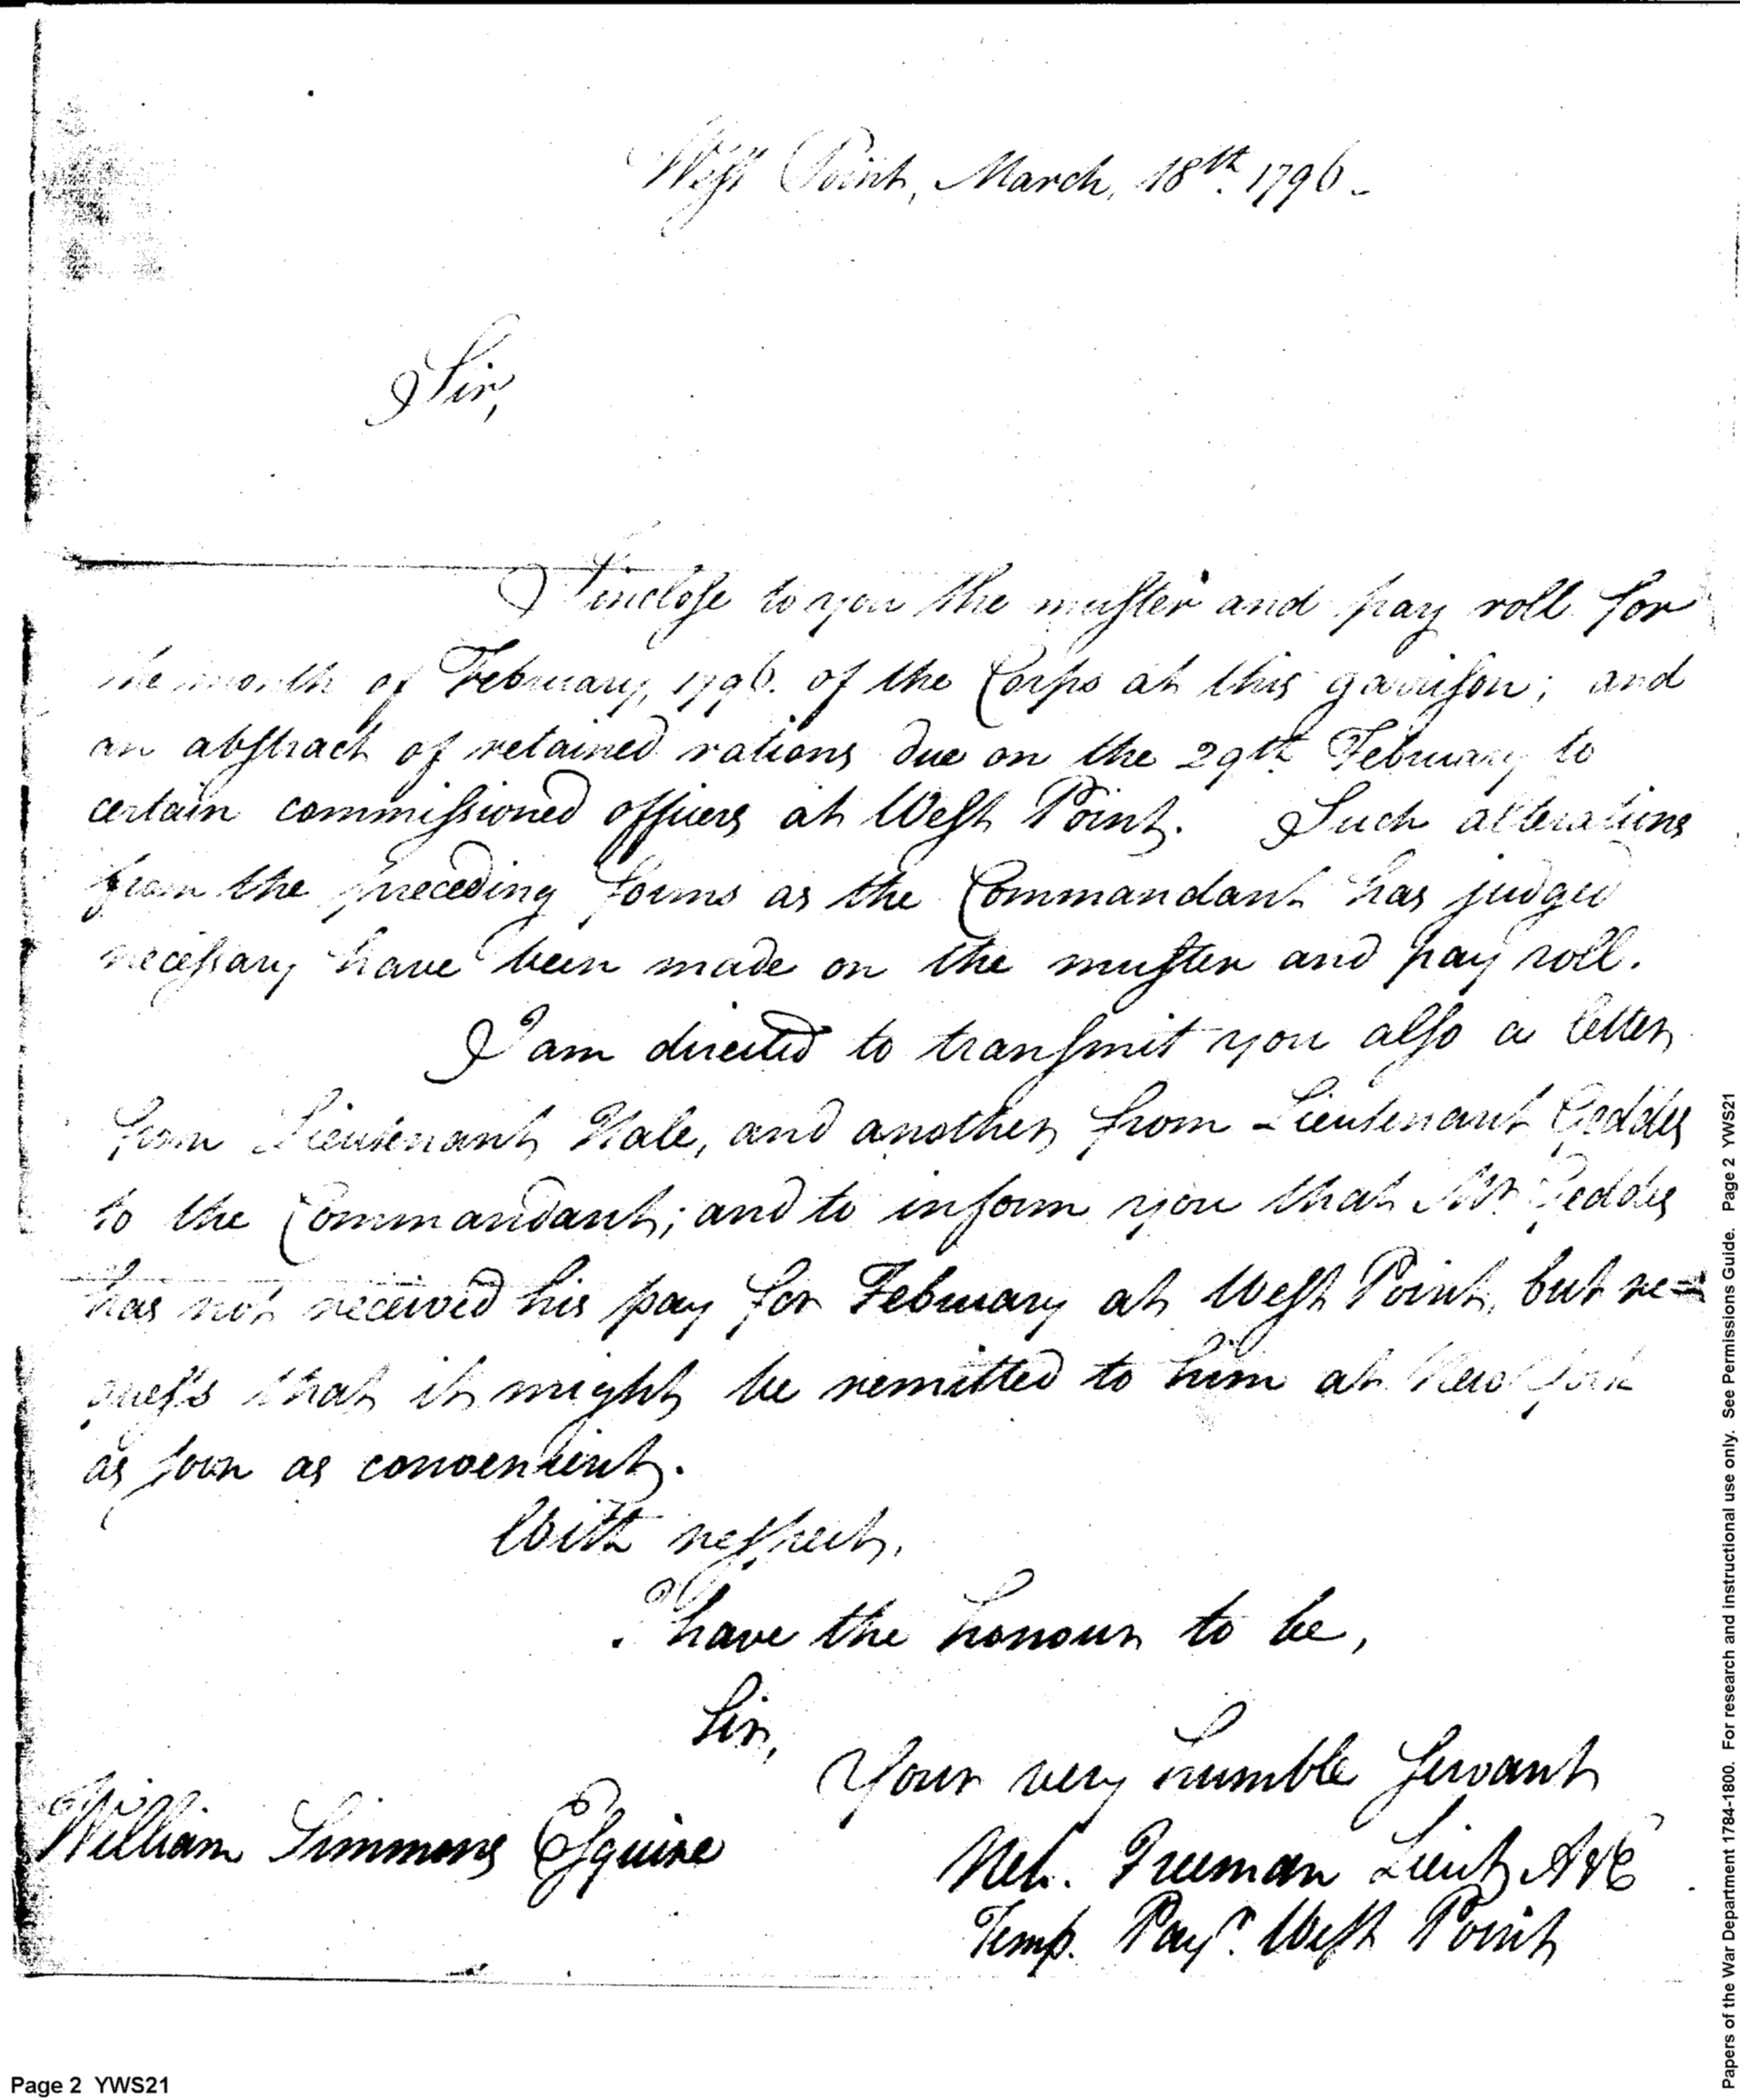 West Point, March, 18th. 1796.
Sir,
I inclose to you the muster and pay roll for
the month of February, 1796. of the Corps at this garrison; and
an abstract of retained rations due on the 29th February to
certain commissioned officers at West Point. Such alterations
from the preceding forms as the Commandant has judged
necessary have been made on the muster and pay roll.
I am directed to transmit you also a letter
from Lieutenant Hale, and another from Lieutenant Geddes
to the Commandant; and to inform you that Mr Geddes
has not received his pay for February at West Point, but re=
quests that it might be remitted to him at New York
as soon as convenient.
With respect,
I have the honour to be,
Sir,
Your very humble servant
William Simmons Esquire
Neh. Freeman Lieut A&E
Temp. Payr. West Point
Page 2 YWS21
Papers of the War Department 1784-1800. For research and instructional use only. See Permissions Guide. Page 2 YWS21